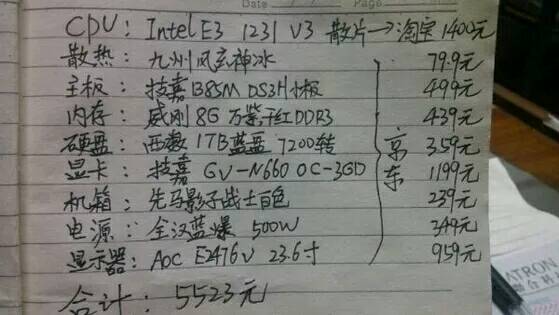 Date
Page
CPU: Intel E3 1231 V3 散片→淘宝 1400元
散热: 九州风玄冰 79.9元
主板: 技嘉 B85M DS3H 小板 499元
内存: 威刚 8G 万紫千红 DDR3 439元
硬盘: 西数 1TB 蓝盘 7200转 359元
显卡: 技嘉 GV-N660 OC-3GD 1199元
机箱: 先马影子战士白色 239元
电源: 全汉蓝爆 500W 349元
显示器: AOC E2476V 23.6寸 959元
京东
合计: 5523元
ATRON